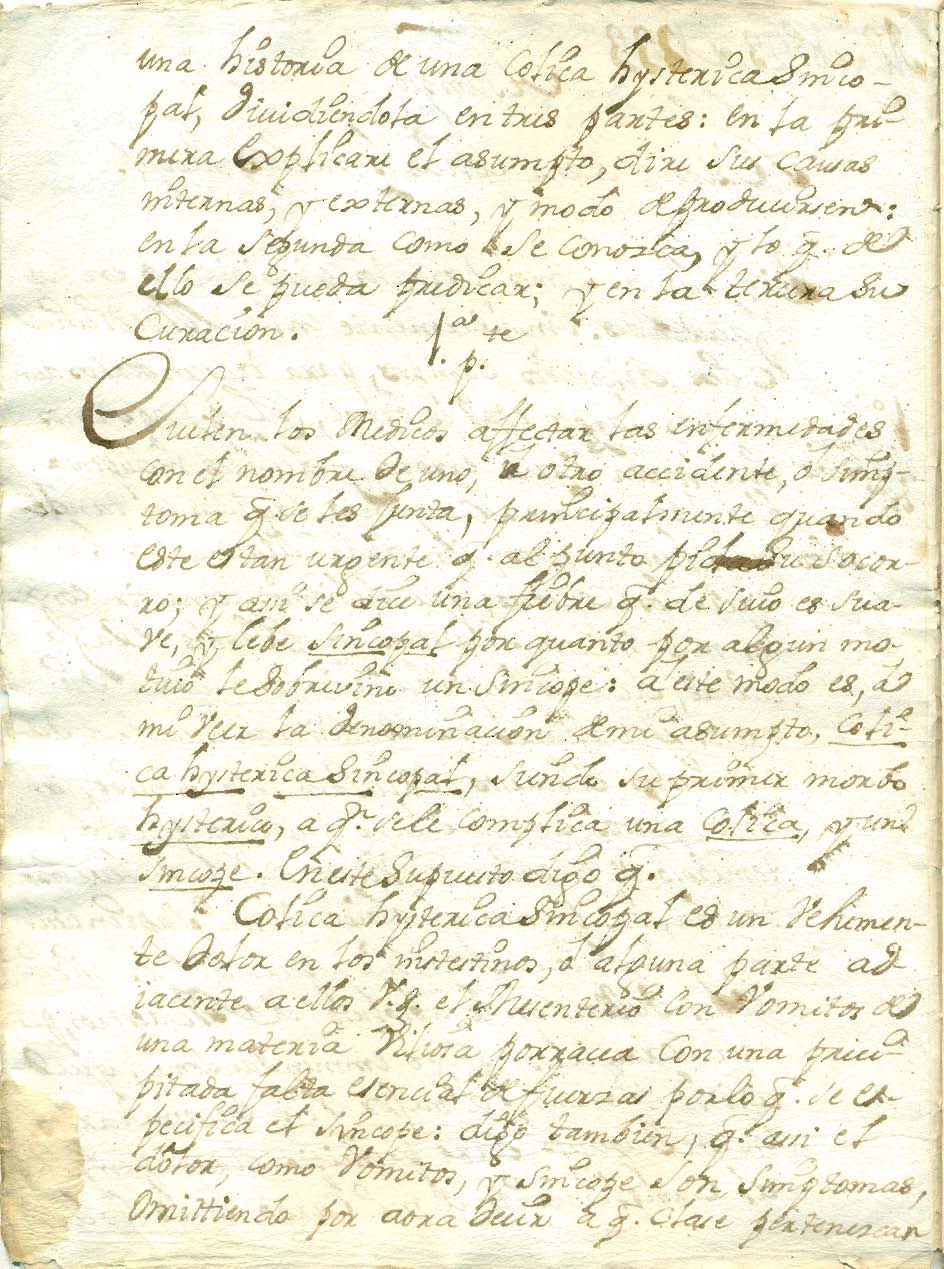 una historia de una Colica hysterica Sinco-
pal, dividiendola en tres partes: en la pri-
mera explicare el asumpto, dire sus causas
internas, y externas, y modo de producirsen:
en la segunda como se conosca, y lo q. de
ello se pueda predicar; y en la tercera su
Curacion.
1.a p.te
Suelen los Medicos affectar las enfermedades
con el nombre de uno, u otro accidente, o simp-
toma q. se les junta, principalmente quando
este es tan urgente q. al punto pide su socor-
ro; y asi se dice una fiebre q. de suio es sua-
ve, y lebe sincopal por quanto por algun mo-
tivo le sobrevino un sincope: a este modo es, a
mi veer la denominacion de mi asumpto, Coli-
ca hysterica Sincopal, siendo su primer morbo
hysterico, a q.n se le complica una Colica, y un
sincope. En este Supuesto digo q.
Colica hysterica Sincopal es un vehemen-
te dolor en los intestinos, o alguna parte ad-
iacente a ellos v.g. el Mesenterio con vomitos de
una materia viliosa porracea con una preci-
pitada falta esencial de fuerzas por lo q. se es-
pecifica el sincope: digo tambien, q. asi el
dolor, como vomitos, y sincope son simptomas,
omittiendo por aora decir a q. clase pertenescan